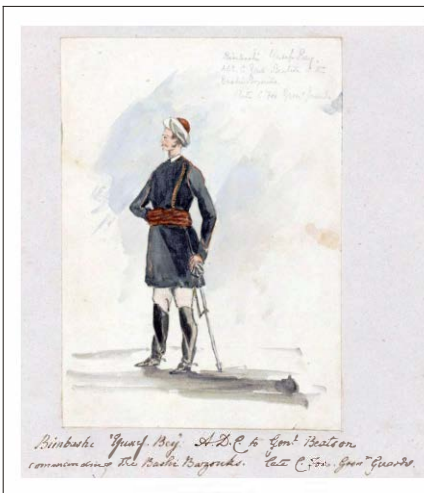 Bimbashi Yusuf Bey
ADC to Genl Beatson
Bashi Bazouks
late C. Fox Grenr Guards
Bimbashi "Yusuf Bey" A.D.C. to Genl. Beatson
commanding the Bashi Bazouks. late C. Fox. Grenr Guards.